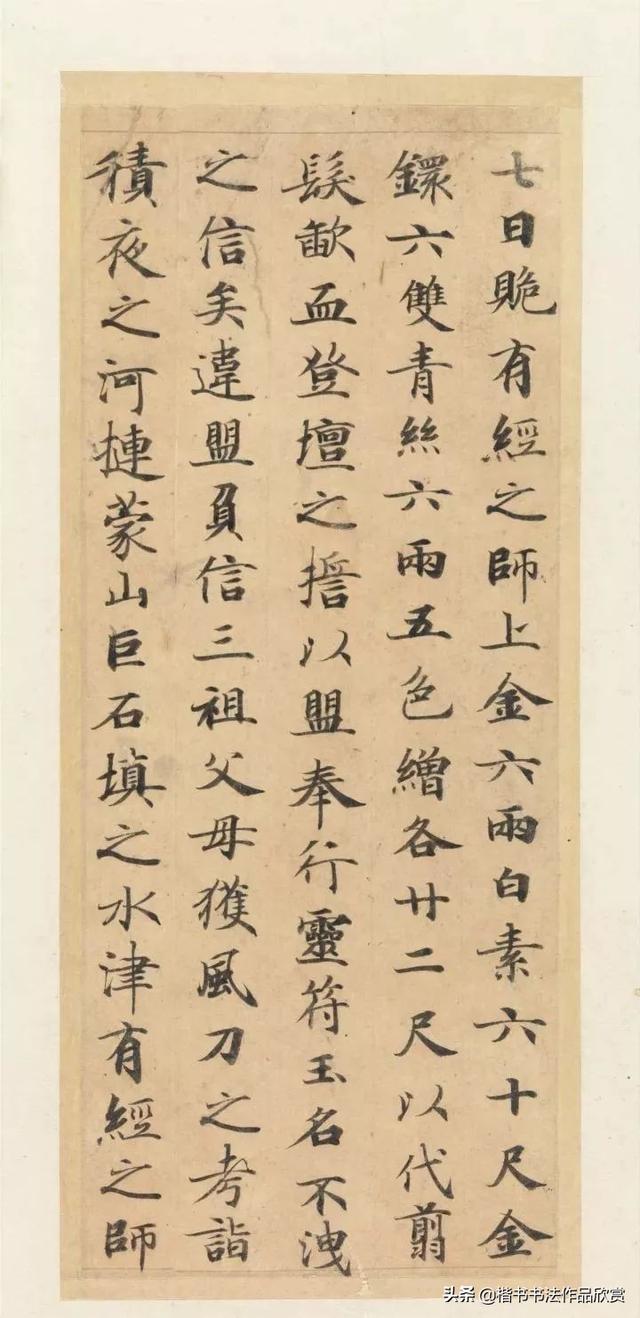 七日貹有經之師上金六兩白素六十尺金
鐶六雙青絲六兩五色繒各廿二尺以代翦
髮歃血登壇之擔以盟奉行靈符玉名不洩
之信矣違盟負信三祖父母獲風刀之考詣
積夜之河摙蒙山巨石填之水津有經之師
头条 @楷书书法作品欣赏